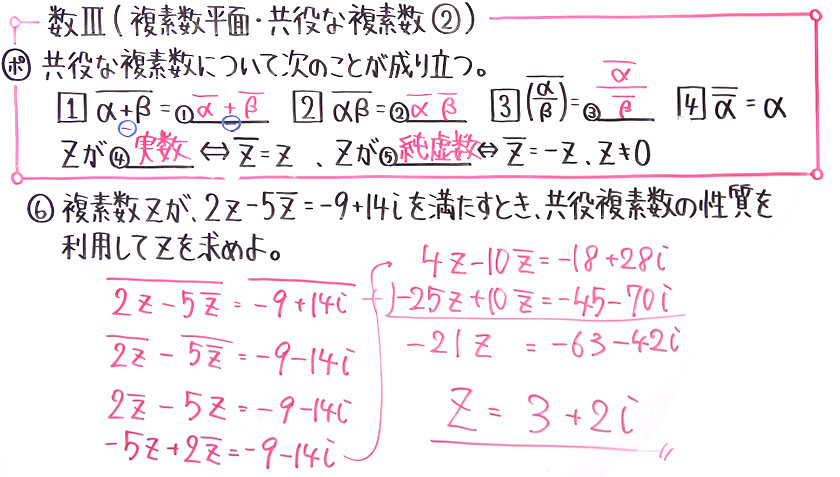 数Ⅲ(複素数平面・共役な複素数②)
ポ 共役な複素数について次のことが成り立つ。
1 \overline{α+β}=①\overline{α}+\overline{β} 2 \overline{αβ}=②\overline{α} \overline{β} 3 \overline{(α/β)}=③\overline{α}/\overline{β} 4 \overline{\overline{α}}=α
(−) (−)
Zが④実数⇔\overline{z}=z、Zが⑤純虚数⇔\overline{z}=-z、z≠0
⑥ 複素数zが、2z-5\overline{z}=-9+14iを満たすとき、共役複素数の性質を
利用してzを求めよ。
\overline{2z-5\overline{z}}=\overline{-9+14i}
\overline{2z}-\overline{5\overline{z}}=-9-14i
2\overline{z}-5z=-9-14i
-5z+2\overline{z}=-9-14i
4z-10\overline{z}=-18+28i
+)-25z+10\overline{z}=-45-70i
-21z =-63-42i
z=3+2i